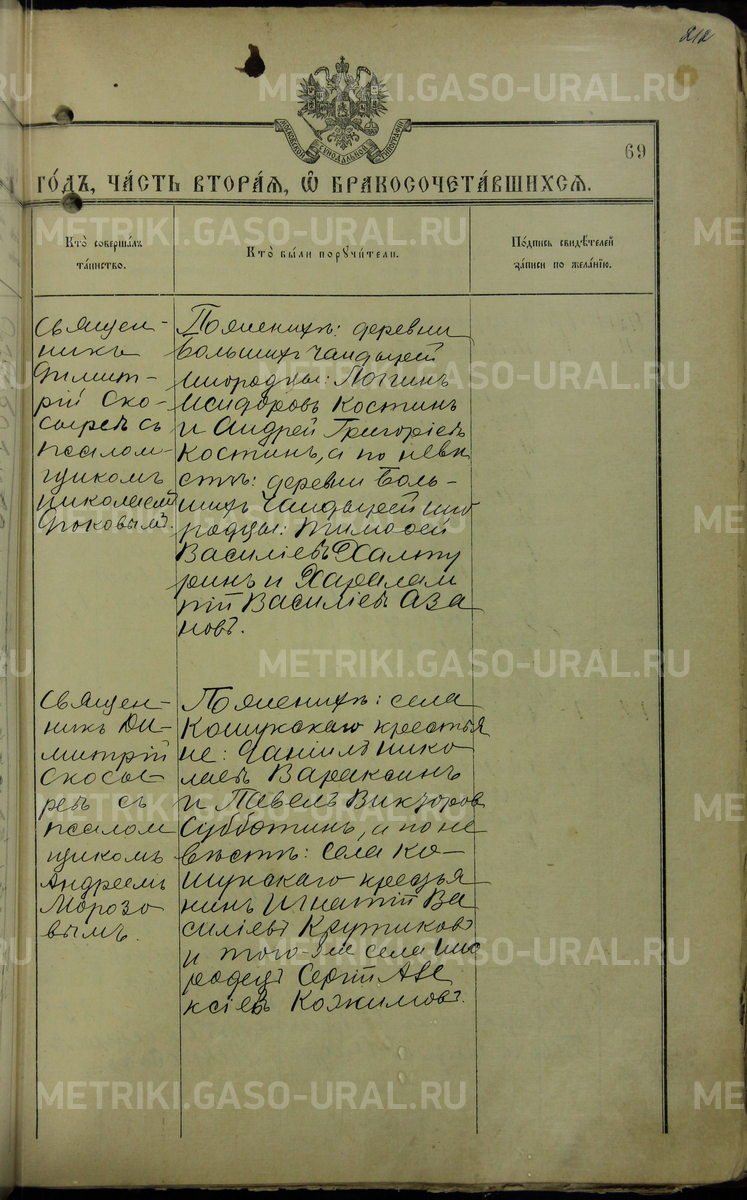 212
МОСКОВСКОЙ СѴНОДАЛЬНОЙ ТИПОГРАФІИ
69
ГО́ДЪ, ЧА́СТЬ ВТОРА́Ѧ, Ѽ БРАКОСОЧЕТА́ВШИХСѦ.
Кто̀ соверша́лъ
та́инство.
Кто̀ бы́ли порꙋчи́тели.
По́дпись свидѣ́телей
за́писи по жела́нїю.
Священ-
никъ
Димит-
рій Ско-
сыревъ съ
псалом-
щикомъ
Николаемъ
По женихѣ: деревни
Большихъ Чандырей
инородцы: Логинъ
Исидоровъ Костинъ
и Андрей Григоріевъ
Костинъ, а по невѣ
стѣ: деревни Боль-
шихъ Чандырей ино
родцы: Тимофей
Василіевъ Халту
ринъ и Харалам
пій Василіевъ Аза
новъ.
Священ-
никъ Ди-
митрій
Скосы-
ревъ съ
псалом
щикомъ
Андреемъ
Морозо
вымъ.
По женихѣ: села
Кошукскаго крестья
не: Даніилъ Нико
лаевъ Вараксинъ
и Павелъ Викторовъ
Субботинъ, а по не
вѣстѣ: села Ко-
шукскаго крестья
нинъ Игнатій Ва
силіевъ Крутиковъ
и того-же села ино
родецъ Сергій Але
ксіевъ Кожимовъ.
METRIKI.GASO-URAL.RU